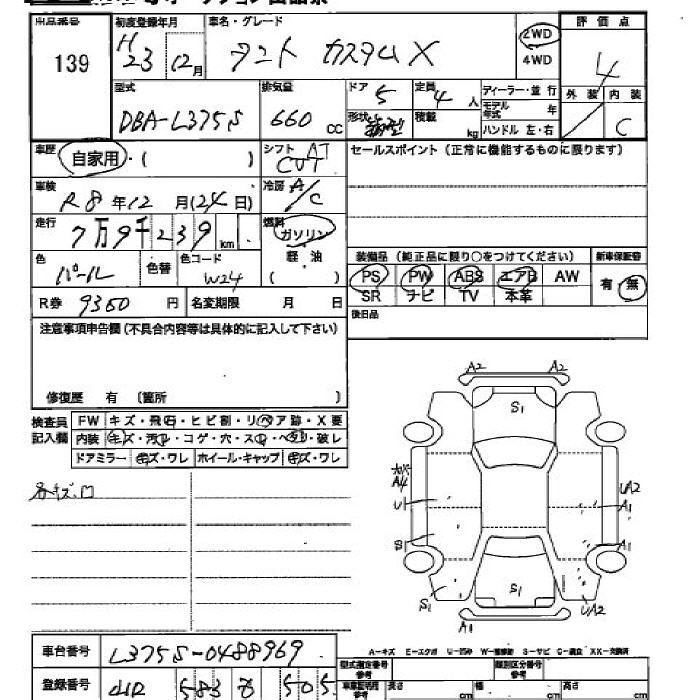 出品番号 初度登録年月 車名・グレード 評価点
139 H23 12月 タント カスタムX 2WD 4WD 4
型式 排気量 ドア 5 定員 4人 ディーラー・並行 外装 内装
DBA-L375S 660 cc 形状 積載 kg モデル年式 年 ハンドル 左・右 C
車歴 自家用・( ) シフト AT CVT セールスポイント(正常に機能するものに限ります)
車検 R8年12月(24日) 冷房 A/C
走行 7万9千239km 燃料 ガソリン
色 パール 色替 色コード W24 軽油 ( )
装備品(純正品に限り○をつけてください) 新車保証書
PS PW ABS エアB AW 有・無
SR ナビ TV 本革
R券 9360円 名変期限 月 日 後日品
注意事項申告欄(不具合内容等は具体的に記入して下さい)
修復歴 有 〔箇所 〕
検査員記入欄 FW キズ・飛石・ヒビ割・リペア跡・X要
内装 キズ・汚れ・コゲ・穴・スレ・ヘタリ・破レ
ドアミラー キズ・ワレ ホイール・キャップ キズ・ワレ
A2 A2
S1
A4
U1 UA2
A1
S1 A1
S1 S1 UA2
A1
車台番号 L375S-0488969
A-キズ E-エクボ U-凹み W-補修跡 S-サビ C-腐食 XX-交換済
登録番号 583 505
型式指定番号参考 類別区分番号参考
車車証明用参考 長さ cm 幅 cm 高さ cm